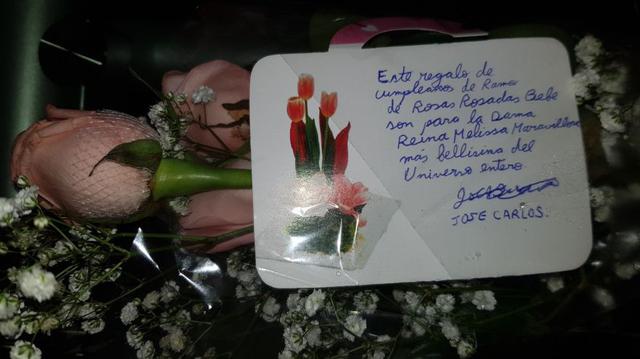 Este regalo de
cumpleaños de Ramo
de Rosas Rosadas Bebe
son para la Dama
Reina Melissa Maravillosa
mas bellisima del
Universo entero
JOSE CARLOS.